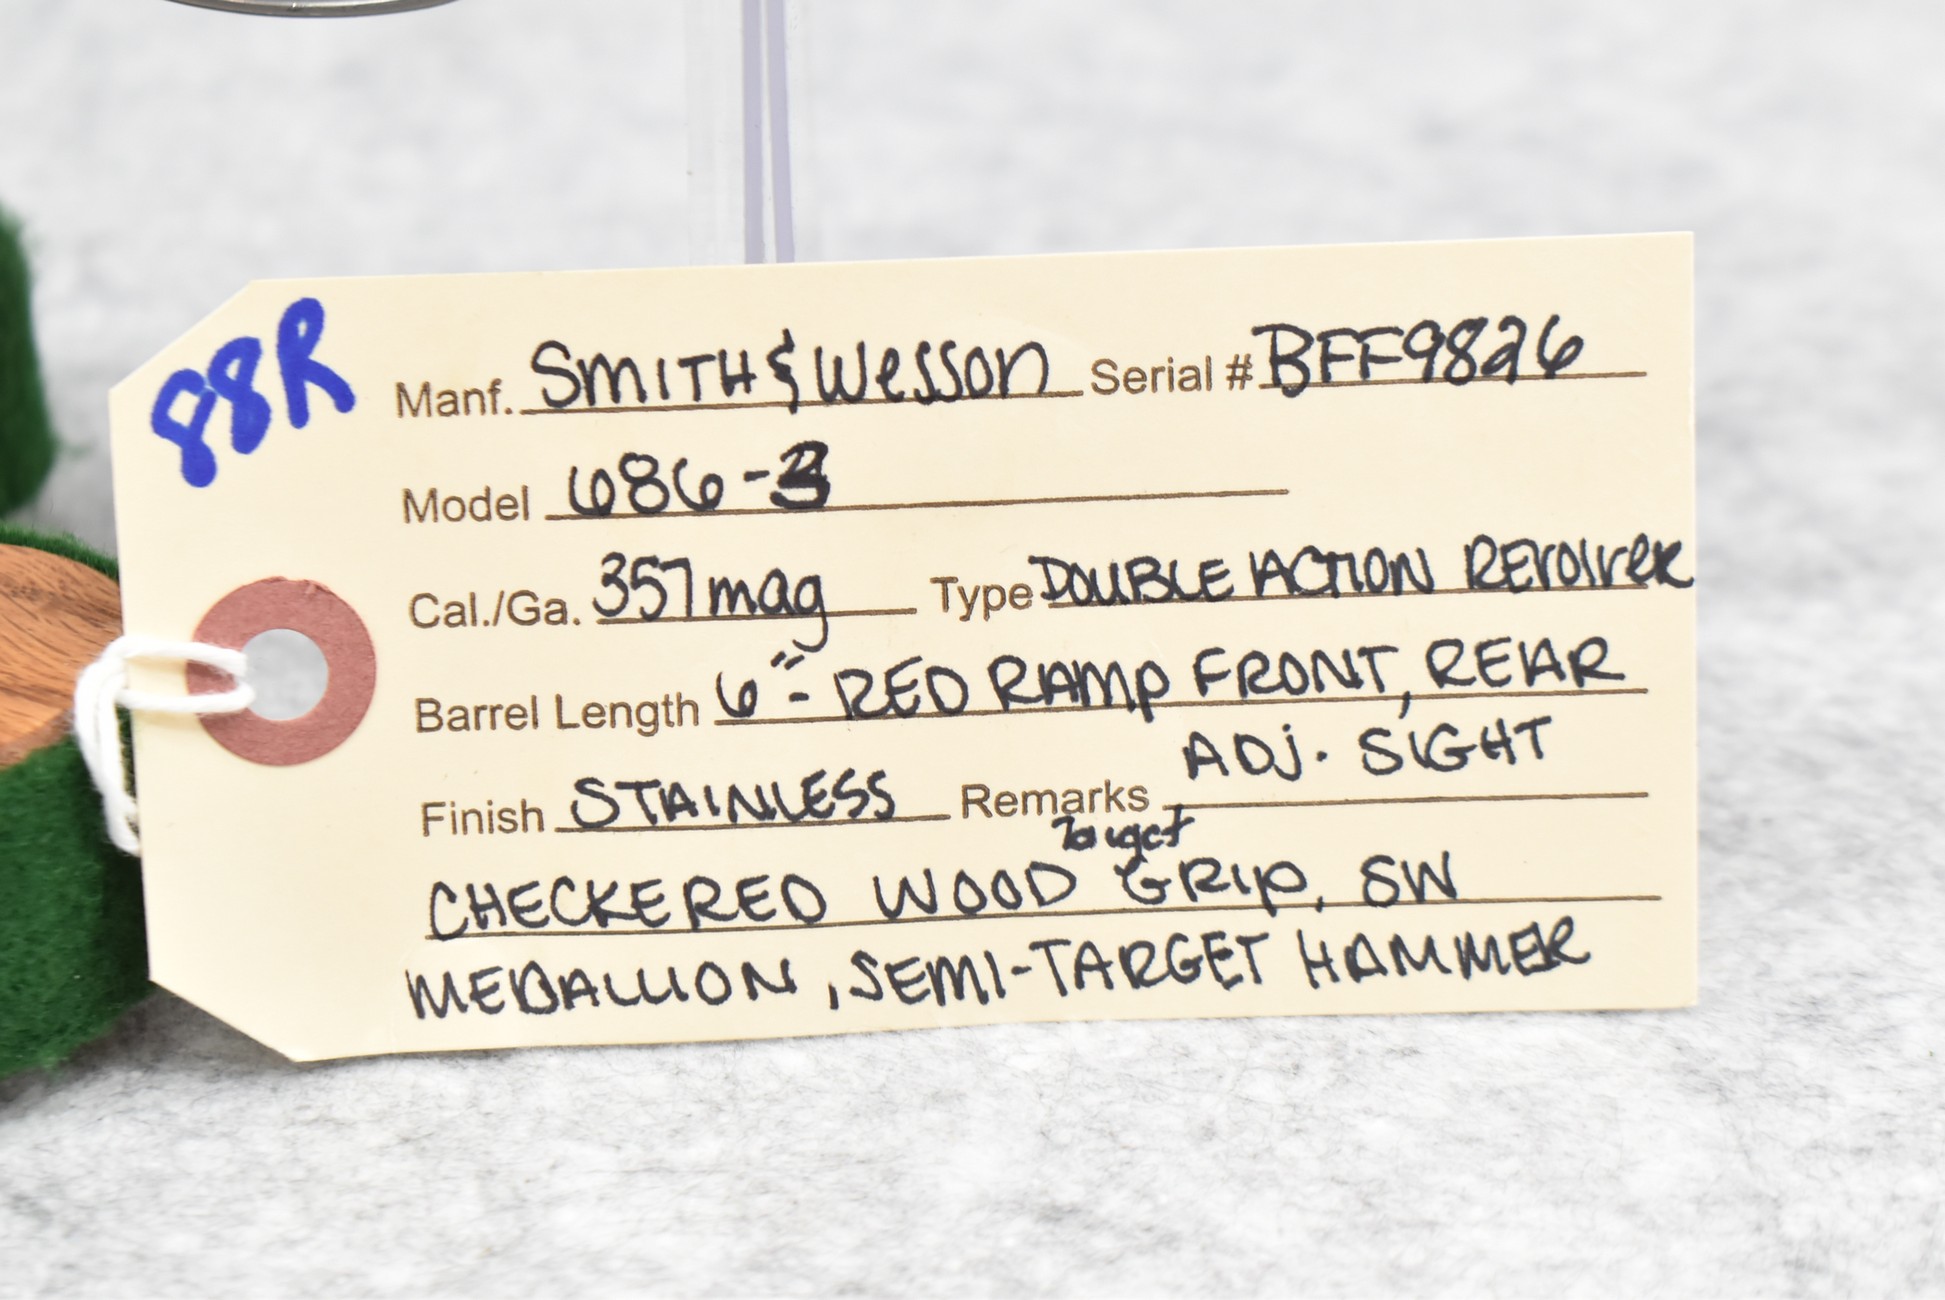 88R
Manf. SMITH & Wesson Serial # BFF9826
Model 686-3
Cal./Ga. 357mag Type DOUBLE ACTION REVOlVER
Barrel Length 6" - RED RAMP FRONT, REAR
ADJ. SIGHT
Finish STAINLESS Remarks
Target
CHECKERED WOOD GRIP, SW
MEDALLION, SEMI-TARGET HAMMER